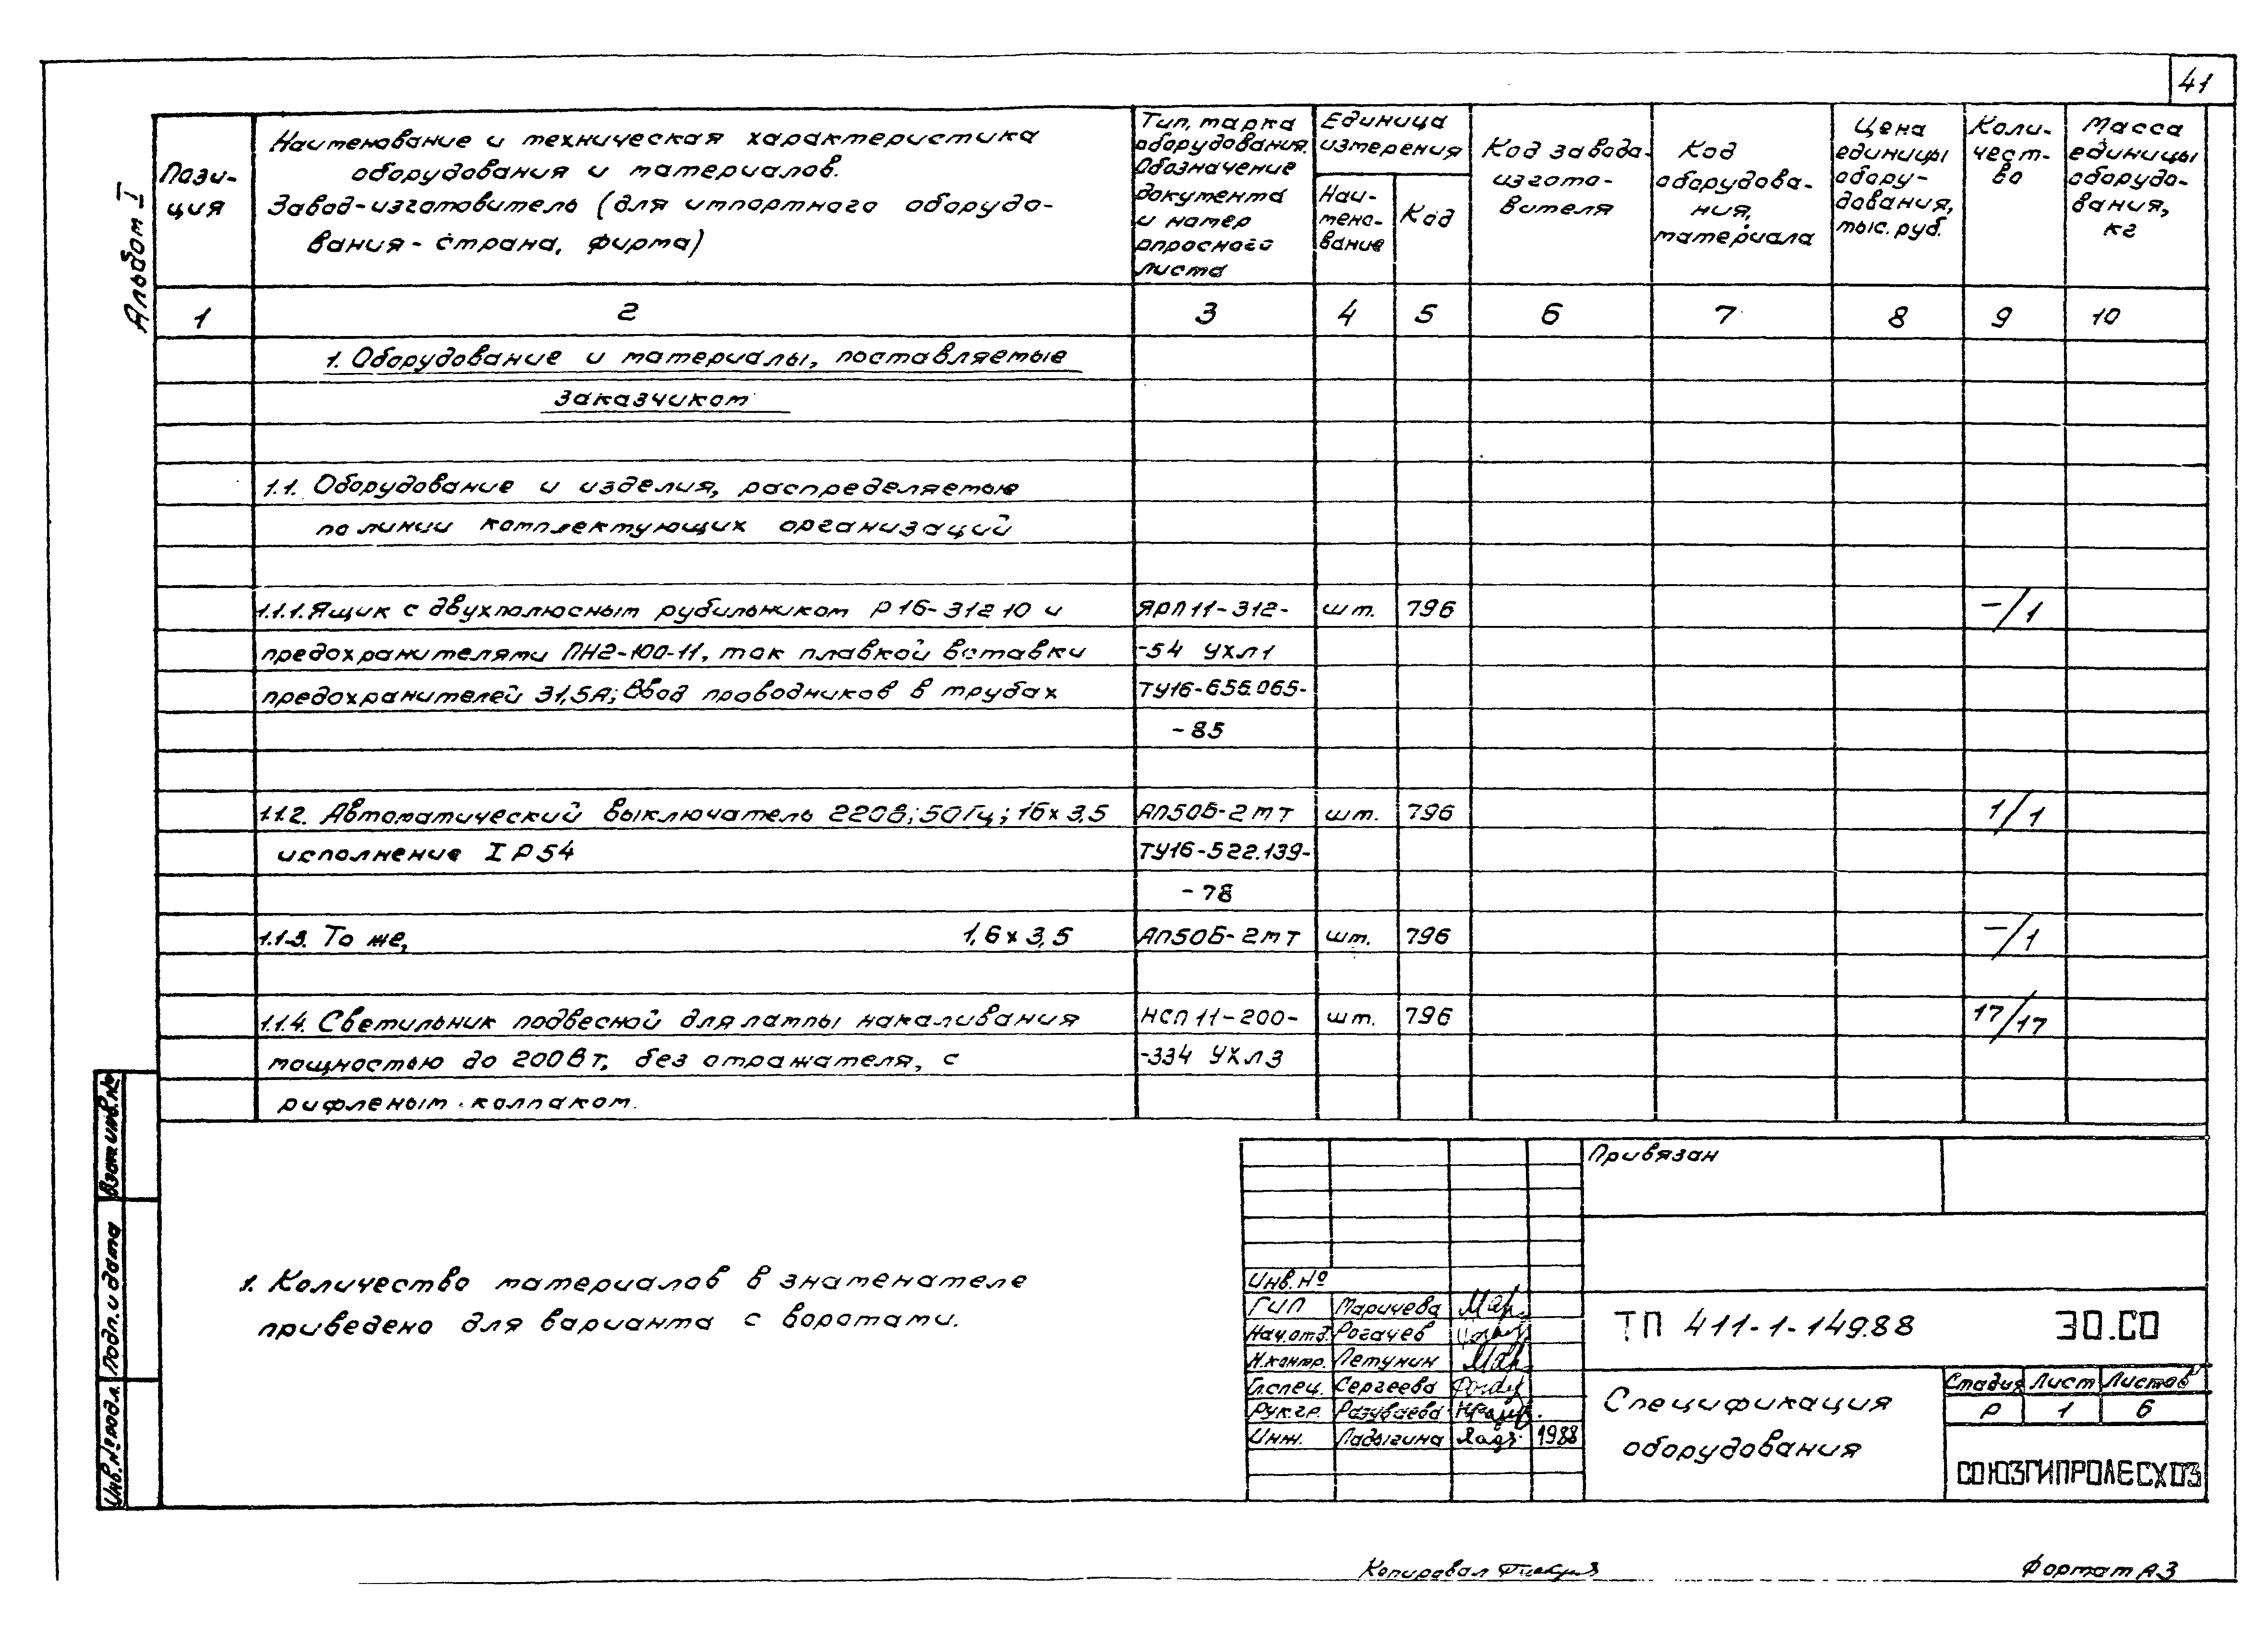 41
Альбом I
Пози-
ция
Наименование и техническая характеристика
оборудования и материалов.
Завод-изготовитель (для импортного оборудо-
вания - страна, фирма)
Тип, марка
оборудования.
Обозначение
документа
и номер
опросного
листа
Единица
измерения
Наи-
мено-
вание
Код
Код завода-
изгото-
вителя
Код
оборудова-
ния,
материала
Цена
единицы
обору-
дования,
тыс. руб.
Коли-
чест-
во
Масса
единицы
оборудо-
вания,
кг
1 2 3 4 5 6 7 8 9 10
1. Оборудование и материалы, поставляемые
заказчиком
1.1. Оборудование и изделия, распределяемые
по линии комплектующих организаций
1.1.1. Ящик с двухполюсным рубильником Р16-31210 и ЯРП11-312- шт. 796 -/1
предохранителями ПН2-100-11, ток плавкой вставки -54 УХЛ1
предохранителей 31,5А; Ввод проводников в трубах ТУ16-656.065-
-85
1.1.2. Автоматический выключатель 220В; 50Гц; 16х3,5 АП50Б-2МТ шт. 796 1/1
исполнение IP54 ТУ16-522.139-
-78
1.1-3. То же, 1,6х3,5 АП50Б-2МТ шт. 796 -/1
1.1.4. Светильник подвесной для лампы накаливания НСП11-200- шт. 796 17/17
мощностью до 200Вт, без отражателя, с -334 УХЛ3
рифленым колпаком.
Взам инв.№
Подп. и дата
Инв.№ подл.
1. Количество материалов в знаменателе
приведено для варианта с воротами.
Привязан
Инв. №
ГИП Маричева
Нач.отд. Рогачев
Н.контр. Петунин
Гл.спец. Сергеева
Рук.гр. Разуваева
Инж. Ладыгина 1988
ТП 411-1-149.88 ЭО.СО
Спецификация
оборудования
Стадия Лист Листов
Р 1 6
СОЮЗГИПРОЛЕСХОЗ
Копировал
Формат А3